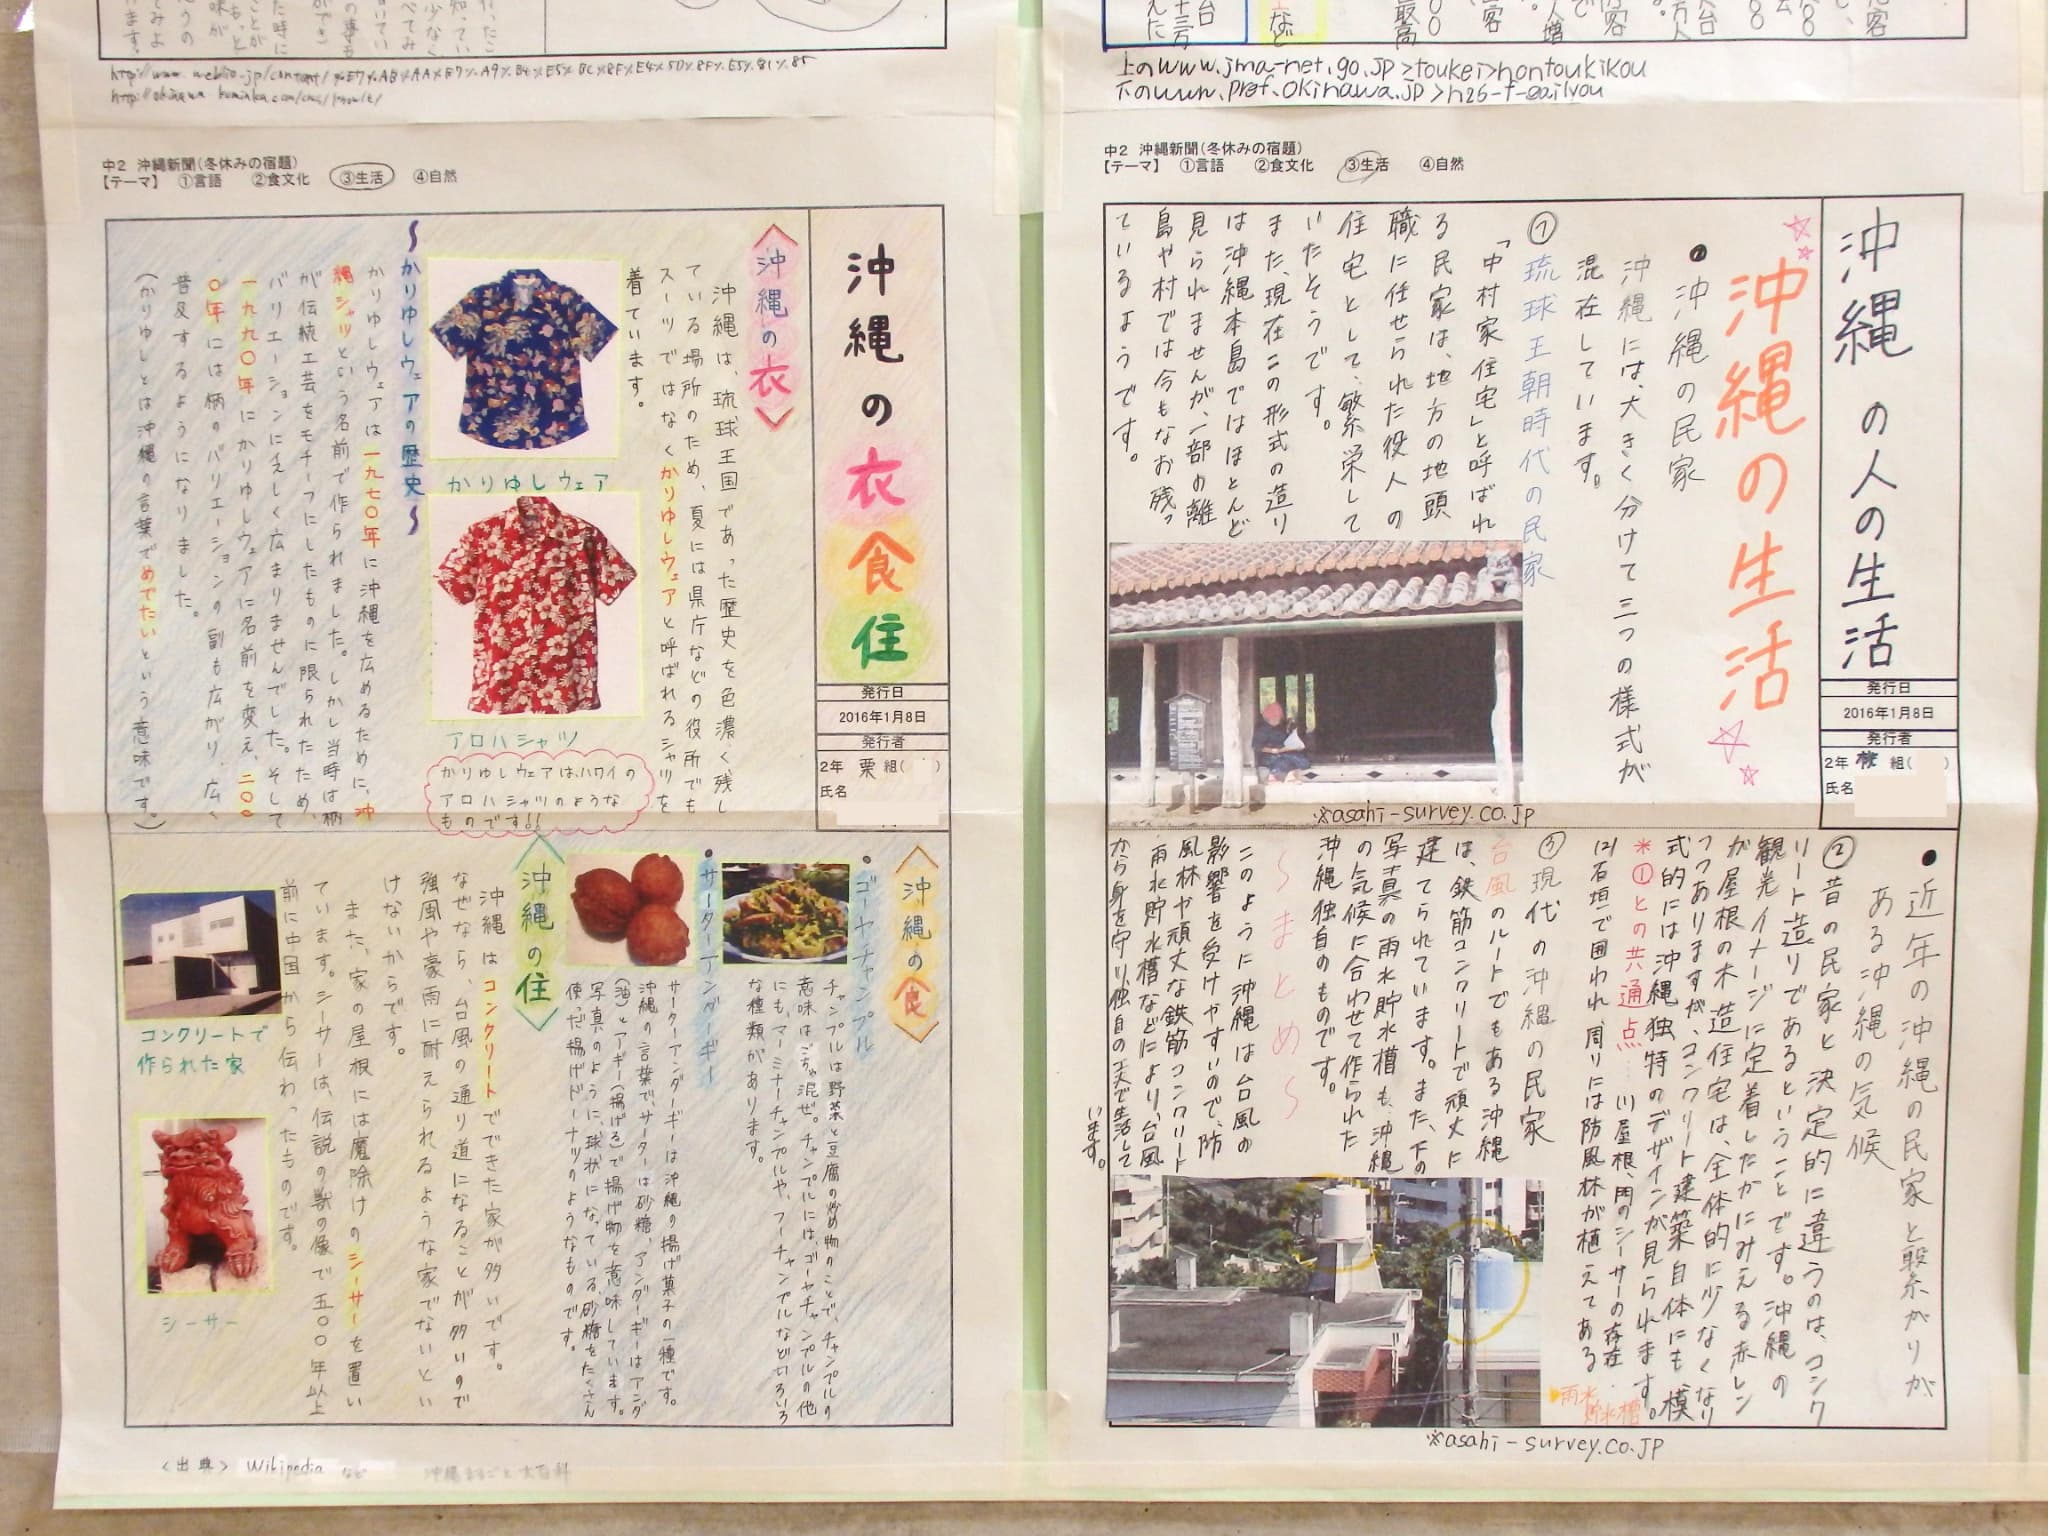 http://www.weblio.jp/content/
上のwww.jma-net.go.jp>toukei>hontoukikou
中2 沖縄新聞(冬休みの宿題)
【テーマ】 ①言語 ②食文化 ③生活 ④自然
沖縄の衣食住
発行日
2016年1月8日
発行者
2年 栗 組( )
氏名
沖縄の衣
沖縄は、琉球王国であった歴史を色濃く残し
ている場所のため、夏には県庁などの役所でも
スーツではなくかりゆしウェアと呼ばれるシャツを
着ています。
かりゆしウェア
アロハシャツ
かりゆしウェアは、ハワイの
アロハシャツのような
ものです!!
〜かりゆしウェアの歴史〜
かりゆしウェアは一九七〇年に沖縄を広めるために、沖
縄シャツという名前で作られました。しかし当時は柄
が伝統工芸をモチーフにしたものに限られたため、
バリエーションに乏しく広まりませんでした。そして
一九九〇年にかりゆしウェアに名前を変え、二〇〇
〇年には柄のバリエーションの副も広がり、広く
普及するようになりました。
(かりゆしとは沖縄の言葉でめでたいという意味です。)
沖縄の食
・ゴーヤチャンプル
チャンプルは野菜と豆腐の炒め物のことで、チャンプルの
意味はごちゃ混ぜ。チャンプルには、ゴーヤチャンプルの他
にも、マーミナーチャンプルや、フーチャンプルなどいろいろ
な種類があります。
・サーターアンダーギー
サーターアンダーギーは沖縄の揚げ菓子の一種です。
沖縄の言葉で、サーターは砂糖、アンダーギーはアンダ
(油)とアギー(揚げる)で揚げ物を意味しています。
写真のように、球状になっている、砂糖をたくさん
使った揚げドーナツのようなものです。
沖縄の住
沖縄はコンクリートでできた家が多いです。
なぜなら、台風の通り道になることが多いので
強風や豪雨に耐えられるような家でないとい
けないからです。
また、家の屋根には魔除けのシーサーを置い
ています。シーサーは、伝説の獣の像で五〇〇年以上
前に中国から伝わったものです。
コンクリートで
作られた家
シーサー
<出典> Wikipedia など 沖縄まるごと大百科
中2 沖縄新聞(冬休みの宿題)
【テーマ】 ①言語 ②食文化 ③生活 ④自然
沖縄の人の生活
発行日
2016年1月8日
発行者
2年 組( )
氏名
沖縄の生活
●沖縄の民家
沖縄には、大きく分けて三つの様式が
混在しています。
①琉球王朝時代の民家
「中村家住宅」と呼ばれ
る民家は、地方の地頭
職に任せられた役人の
住宅として、繁栄して
いたそうです。
また、現在この形式の造り
は沖縄本島ではほとんど
見られませんが、一部の離
島や村では今もなお残っ
ているようです。
※asahi-survey.co.jp
●近年の沖縄の民家と繋がりが
ある沖縄の気候
②昔の民家と決定的に違うのは、コンク
リート造りであるということです。沖縄の
観光イメージに定着したかにみえる赤レン
が屋根の木造住宅は、全体的に少なくなり
つつありますが、コンクリート建築自体にも、模
式的には沖縄独特のデザインが見られます。
*①との共通点…(1)屋根、門のシーサーの存在
(2)石垣で囲われ、周りには防風林が植えてある
③現代の沖縄の民家
台風のルートでもある沖縄
は、鉄筋コンクリートで頑丈に
建てられています。また、下の
写真の雨水貯水槽も、沖縄
の気候に合わせて作られた
沖縄独自のものです。
〜まとめ〜
このように沖縄は台風の
影響を受けやすいので、防
風林や頑丈な鉄筋コンクリート
雨水貯水槽などにより、台風
から身を守り、独自の工夫で生活して
います。
雨水
貯水槽
※asahi-survey.co.jp